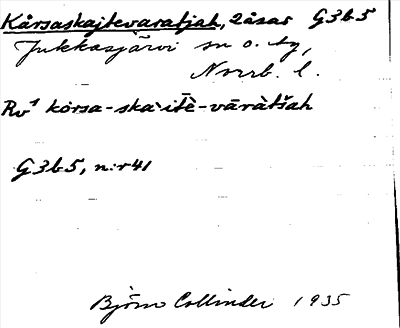 Kårsaskajtevaratjah, 2 åsar G3b5
Jukkasjärvi sn o. tg,
Norrb. l.
Rv¹ kårsa-skaitē-vāràtšah
G3b5, n:r 41
Björn Collinder 1935